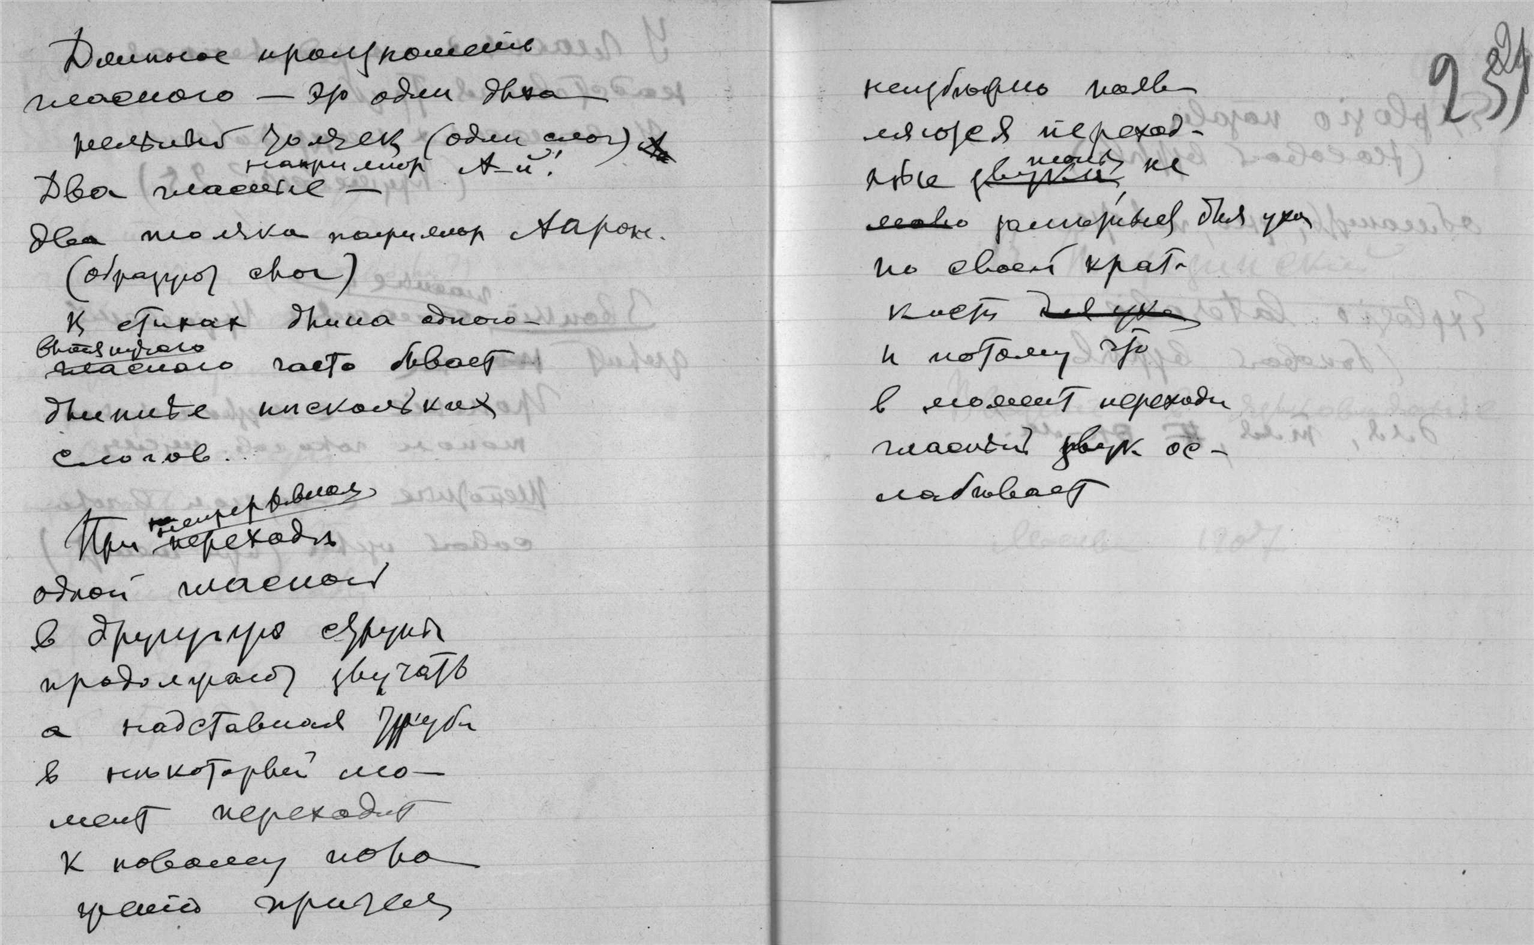 Длинное произношенiе
гласного — это один дыха
тельный толчек (один слог)
например А-й!
Два гласные —
два толчка например Аарон.
(образуют слог)
В стихах длина одного
вытянутого
гласного часто бывает
длиннѣе нескольких
слогов.
непрерывном
При переходѣ
одной гласной
в другую струны
продолжают звучать
а надставная труба
в нѣкоторый мо-
мент переходит
к новому поло
жению причем
неизбѣжно появ
ляются переход-
ные звуки, не
замѣтные для уха
по своей крат-
кости для уха
и потому что
в момент перехода
гласный звук ос-
лабѣвает